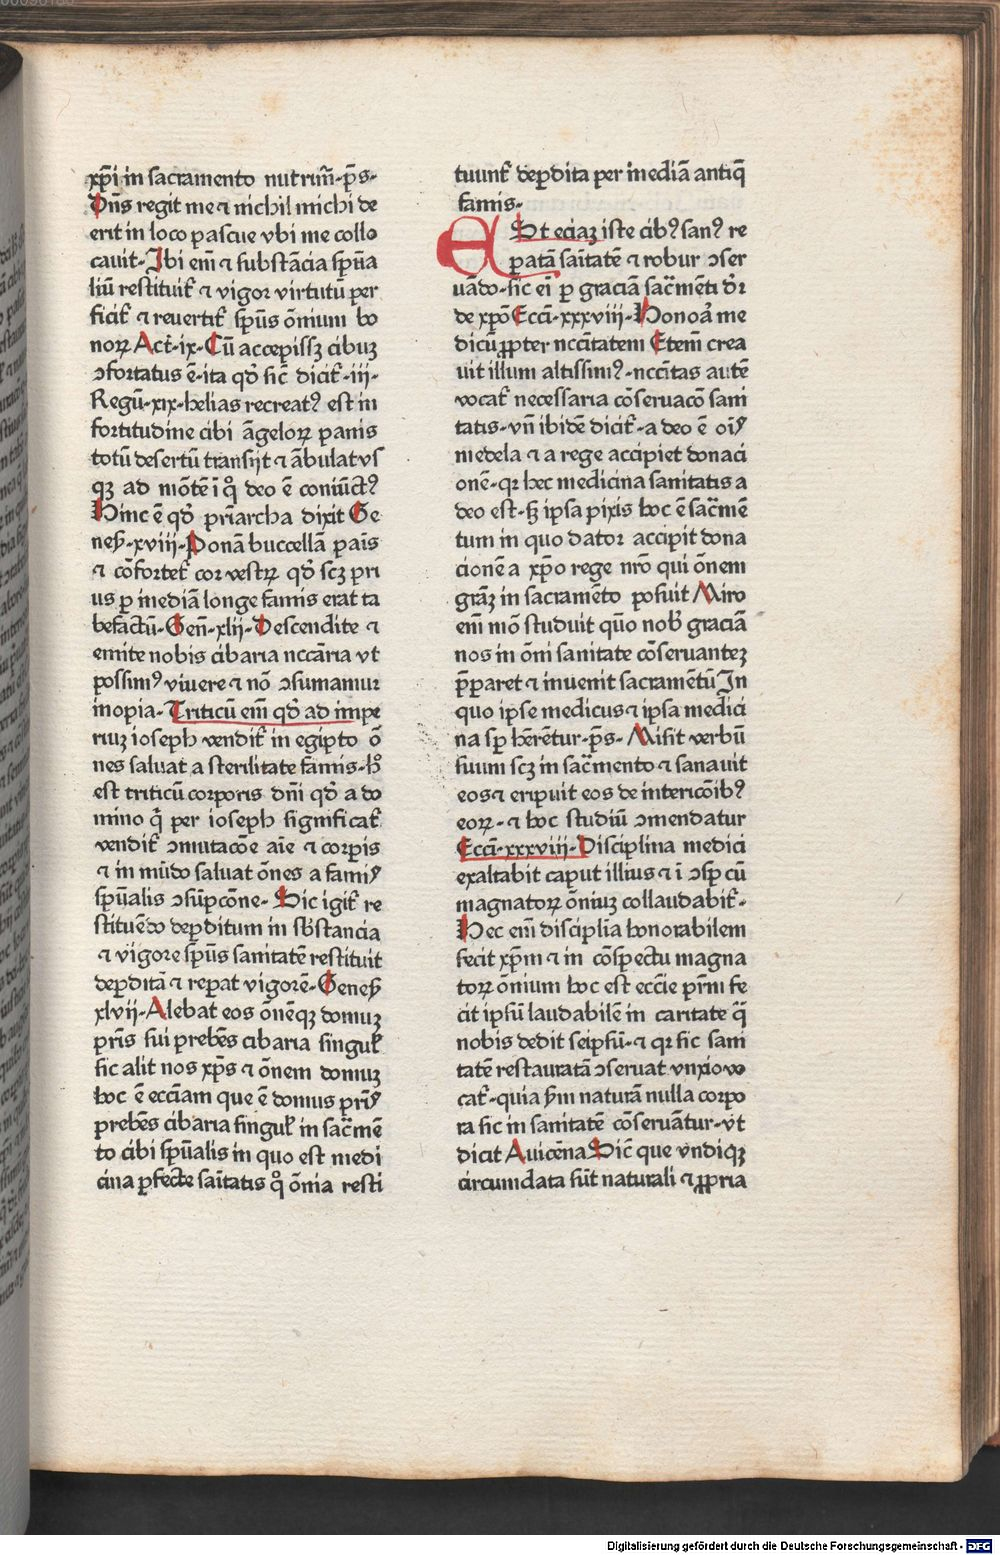 xp̄i in sacramento nutrim̃·p̄s·
Dñs regit me ⁊ nichil michi de
erit in loco pascue vbi me collo
cauit·Ibi em̄ ⁊ substãcia sp̄ua
liũ restituit̃ ⁊ vigor virtutũ per
ficit̃ ⁊ reuertit̃ sp̄us õmium bo
noꝝ Act̃·ix·Cũ accepissꝫ cibuꝫ
ↄfortatus ē·ita qd̛ sic̃ dicit̃·iii·
Regũ·xix·helias recreatꝰ est in
fortitudine cibi ãgeloꝝ panis
totũ desertũ transijt ⁊ ãbulatvs
qꝫ ad mõtē ĩ q̊ deo ē coniũctꝰ
Hinc ē qd̛ pr̃iarcha dixit Ge
neß·xviii·Ponã buccellã pañis
⁊ cõfortet̃ cor vestrꝫ qd̛ scꝫ pri
us ꝑ inediã longe famis erat ta
befactũ·Geñ·xlii·Descendite ⁊
emite nobis cibaria nccãria vt
possimꝰ viuere ⁊ nõ ↄsumamur
inopia·Triticũ em̄ qd̛ ad impe
riuꝫ ioseph vendit̃ in egipto õ
nes saluat a sterilitate famis·h̊
est triticũ corporis dñi qd̛ a do
mino q̃ per ioseph significat̃
vendit̃ ↄmutacõe aĩe ⁊ corpis
⁊ in mũdo saluat õnes a famiꝰ
sp̄ualis ↄsũpcõne·Sic igit̃ re
stituẽdo deꝑditum in sb̃stancia
⁊ vigore sp̄us sanitatẽ restituit
deꝑditã ⁊ reꝑat vigorẽ·Geneß
xlvii·Alebat eos õnẽqꝫ domuꝫ
pr̃is sui prebẽs cibaria singul̃
sic alit nos xp̄s ⁊ õnem domuꝫ
hoc ē eccĩam que ē domus pr̃iꝰ
prebẽs cibaria singul̃ in sac̃mẽ
to cibi sp̄ualis in quo est medi
cina ꝑfecte sañitatis q̊ õnia resti
tuunt̃ deꝑdita per inediã antiq̃
famis·
ESt eciaꝫ iste cibꝰ sanꝰ re
ꝑatã sañitatẽ ⁊ robur ↄser
uãdo·sic eĩ ꝑ graciã sac̃mẽti d̛r
de xp̄o Ecci̇̃·xxxviii·Honoã me
dicũ ꝓpter nccĩtatem Etem̄ crea
uit illum altissimꝰ·nccĩtas autẽ
vocat̃ necessaria cõseruacõ sani
tatis·vñ ibidẽ dicit̃·a deo ē oĩꝰ
medela ⁊ a rege accipiet donaci
onẽ·qꝛ hec medicina sanitatis a
deo est·ꝩ ipsa pixis hoc ē sac̃mẽ
tum in quo dator accipit dona
cionẽ a xp̄o rege nr̃o qui õnem
grãꝫ in sacramẽto posuit Miro
em̄ mõ studuit quõ nobꝰ graciã
nos in õni sanitate cõseruanteꝫ
p̄ꝑaret ⁊ inuenit sacramẽtũ In
quo ipse medicus ⁊ ipsa medici
na sꝑ hẽrẽtur·p̄s·Misit verbũ
suum scꝫ in sac̃mento ⁊ sanauit
eos ⁊ eripuit eos de intericõibꝰ
eoꝝ·⁊ hoc studiũ ↄmendatur
Ecci̇̃·xxxviii·Disciplina medici
exaltabit caput illius ⁊ ĩ ↄsꝑ cũ
magnatoꝝ õniuꝫ collaudabit̃·
Hec em̄ disciplĩa honorabilem
fecit xp̄m ⁊ in cõspectu magna
toꝝ õnium hoc est ecc̃ie pr̃ni fe
cit ipsũ laudabilẽ in caritate q̃
nobis dedit seipsũ·⁊ qꝛ sic sani
tatẽ restauratã ↄseruat vnxio vo
cat̃·quia ẞm naturã nulla corpo
ra sic in sanitatẽ cõseruãtur·vt
dicit Auicẽna Sic̃ que vndiqꝫ
circumdata sũt naturali ⁊ ꝓpria
Digitalisierung gefördert durch die Deutsche Forschungsgemeinschaft - DFG